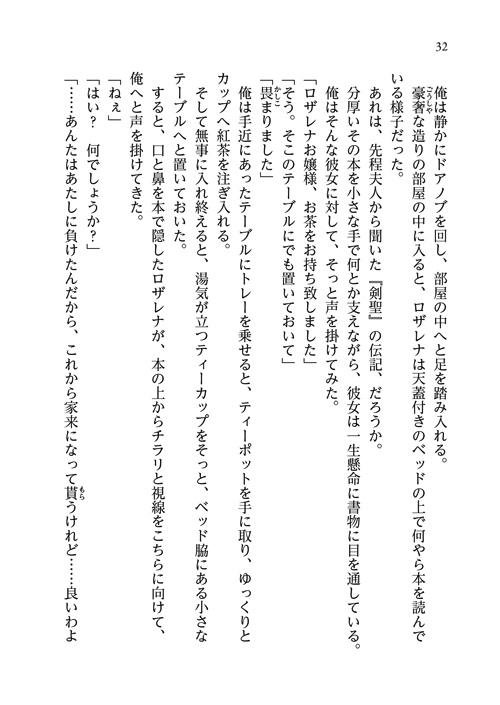 32
俺は静かにドアノブを回し、部屋の中へと足を踏み入れる。
豪奢な造りの部屋の中に入ると、ロザレナは天蓋付きのベッドの上で何やら本を読んで
いる様子だった。
あれは、先程夫人から聞いた『剣聖』の伝記、だろうか。
分厚いその本を小さな手で何とか支えながら、彼女は一生懸命に書物に目を通している。
俺はそんな彼女に対して、そっと声を掛けてみた。
「ロザレナお嬢様、お茶をお持ち致しました」
「そう。そこのテーブルにでも置いておいて」
「畏まりました」
俺は手近にあったテーブルにトレーを乗せると、ティーポットを手に取り、ゆっくりと
カップへ紅茶を注ぎ入れる。
そして無事に入れ終えると、湯気が立つティーカップをそっと、ベッド脇にある小さな
テーブルへと置いておいた。
すると、口と鼻を本で隠したロザレナが、本の上からチラリと視線をこちらに向けて、
俺へと声を掛けてきた。
「ねぇ」
「はい？　何でしょうか？」
「……あんたはあたしに負けたんだから、これから家来になって貰うけれど……良いわよ